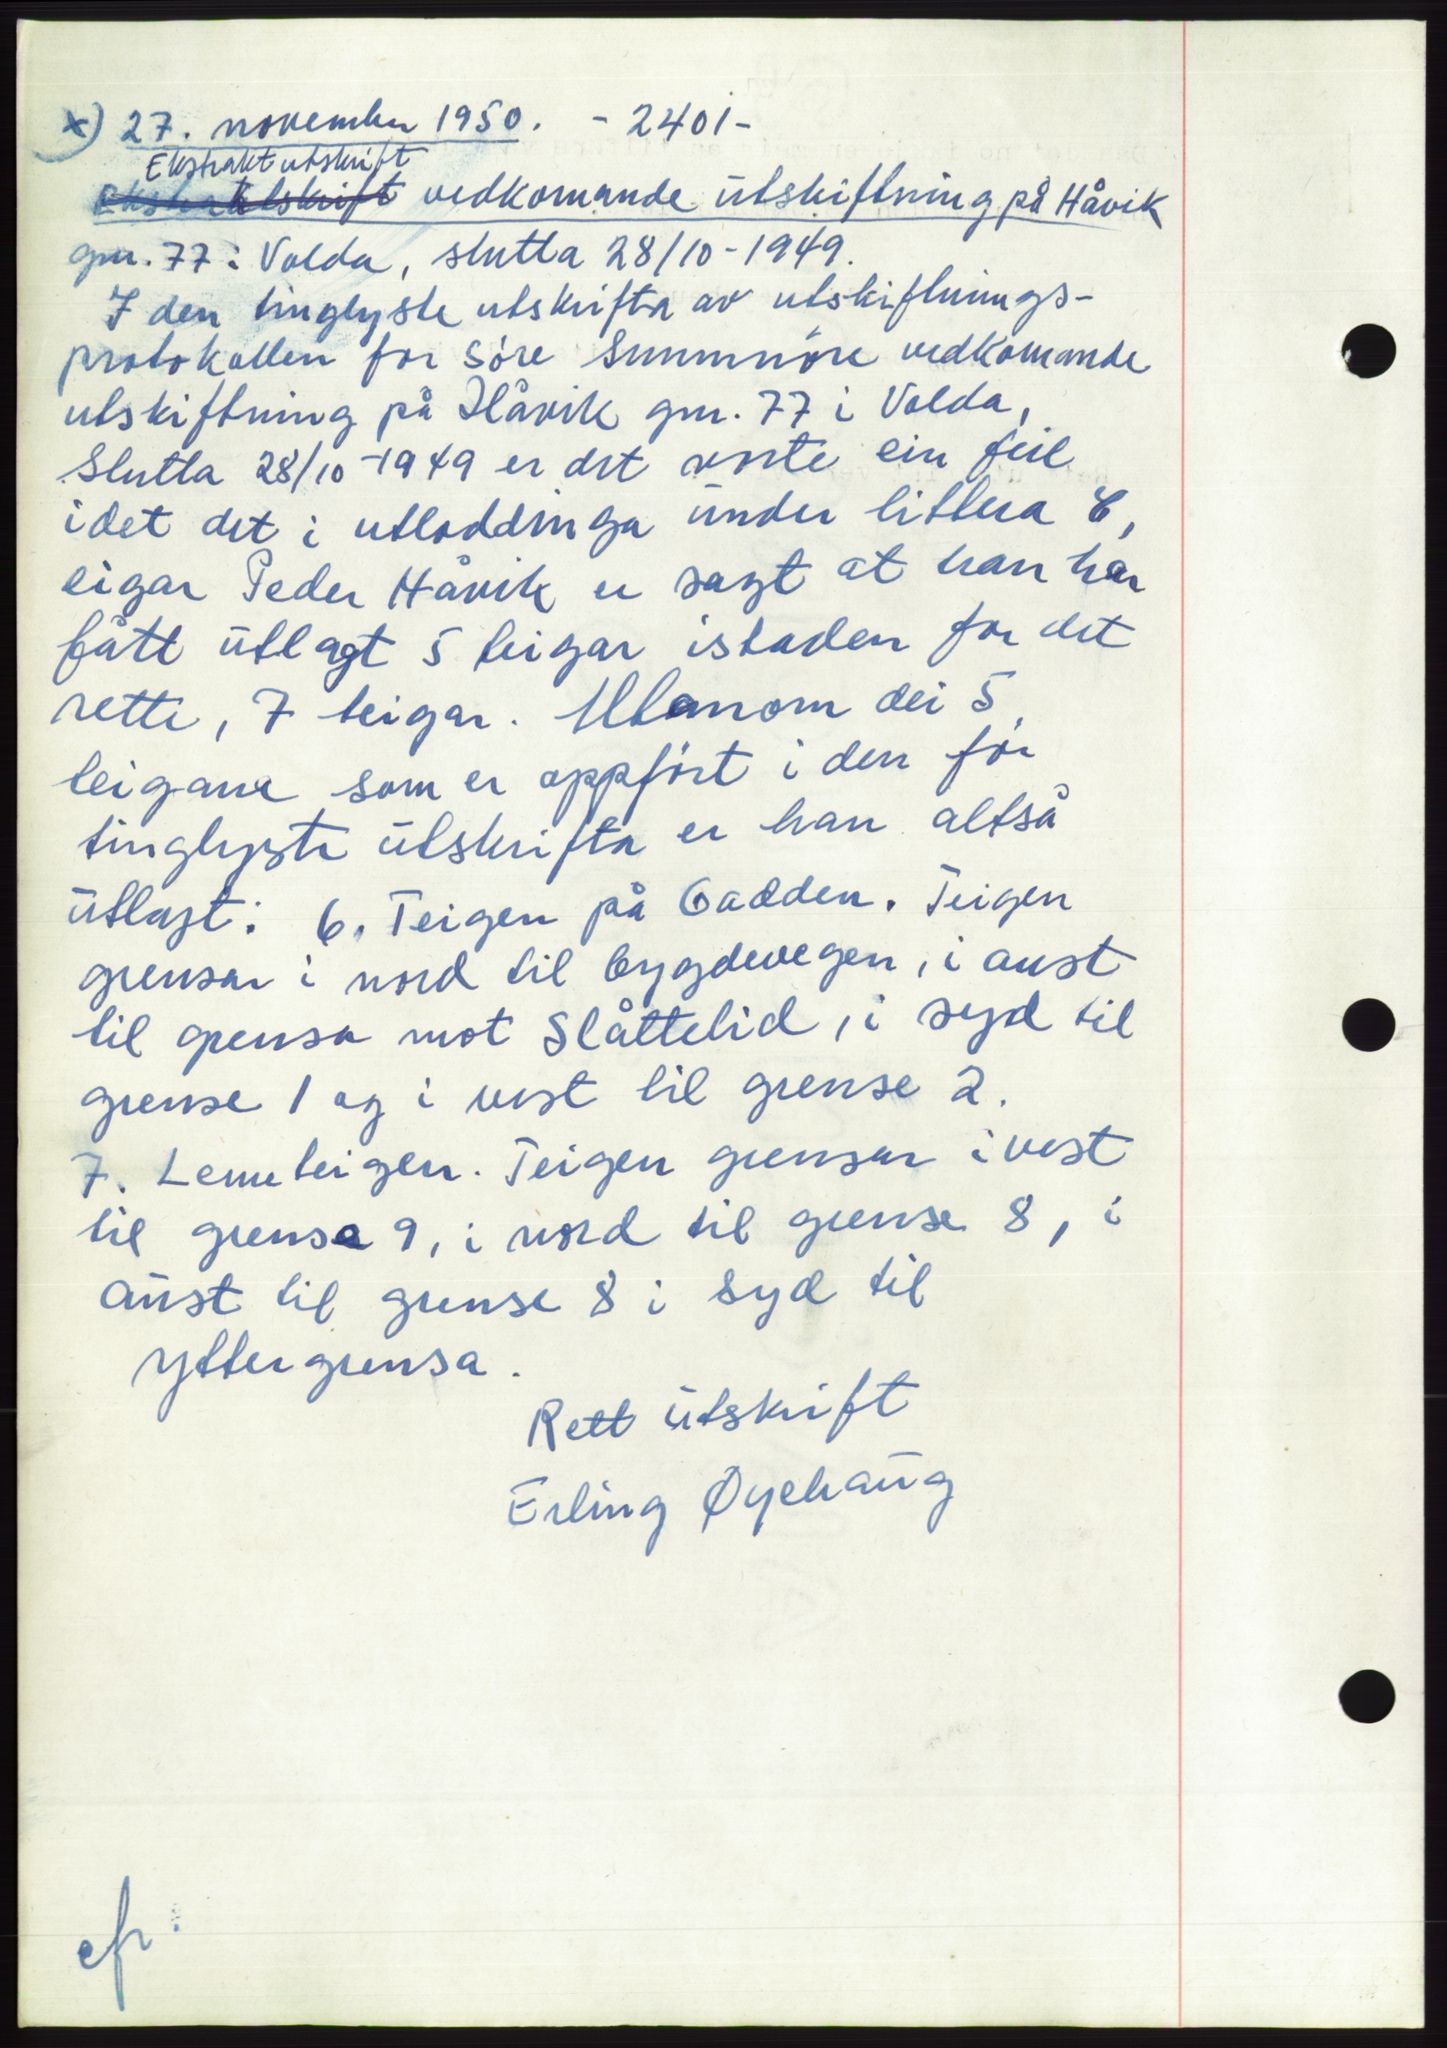 x) 27. november 1950. - 2401 -
Ekstrakt utskrift
vedkomande utskiftning på Håvik
gnr. 77 i Volda, slutta 28/10-1949.
I den tinglyste utskrifta av utskiftnings-
protokollen for Søre Sunnmøre vedkomande
utskiftning på Håvik gnr. 77 i Volda,
slutta 28/10-1949 er det vorte ein feil
idet det i utloddinga under littera C,
eigar Peder Håvik er sagt at han har
fått utlagt 5 teigar istaden for det
rette, 7 teigar. Utanom dei 5
teigane som er oppført i den før
tinglyste utskrifta er han altså
utlagt: 6. Teigen på Gadden. Teigen
grensar i nord til bygdevegen, i aust
til grensa mot Slåttelid, i syd til
grense 1 og i vest til grense 2.
7. Lemeteigen. Teigen grensar i vest
til grense 9, i nord til grense 8, i
aust til grense 8 i syd til
yttergrensa.
Rett utskrift
Erling Øyehaug
cfr: